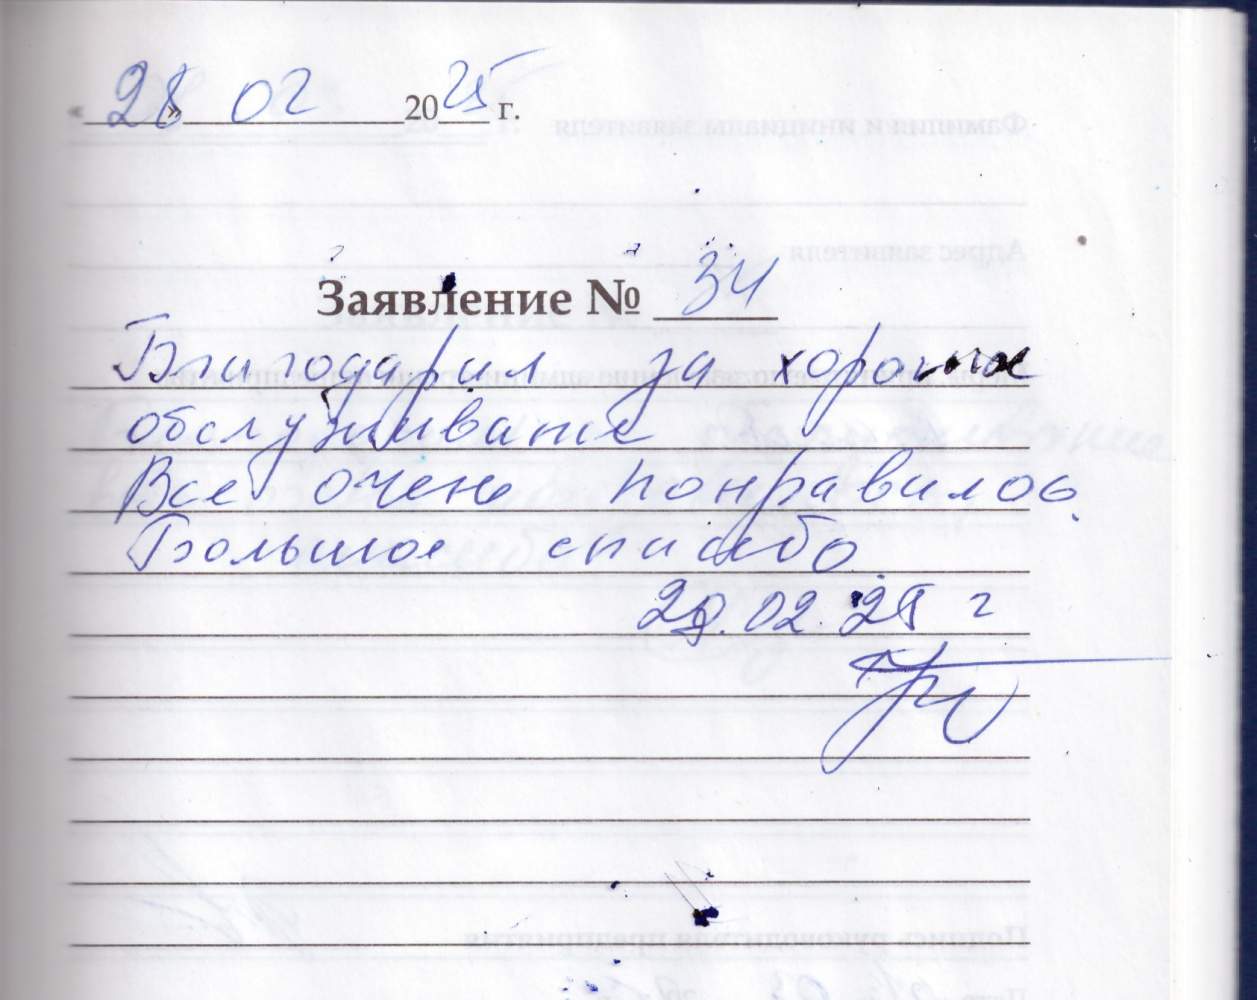 « 28 » 02 2025 г.
Заявление № 34
Благодарил за хорошие
обслуживание
Все очень понравилось
Большое спасибо
28.02.25 г